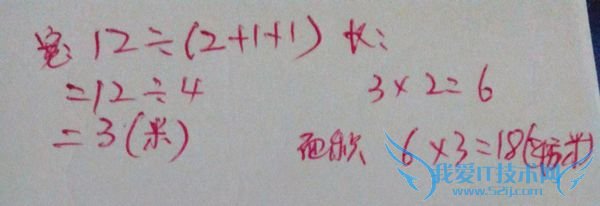 宽: 12÷(2+1+1)
=12÷4
=3(米)
长:
3×2=6
面积 6×3=18(平方米)
我爱IT技术网
www.52ij.com